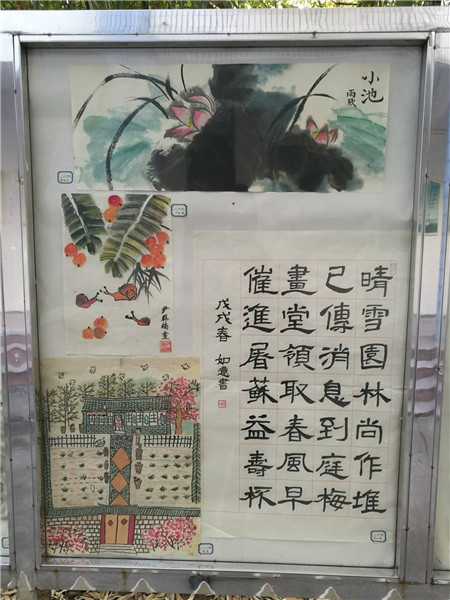 小池
雨欣
晴雪園林尚作堆
已傳消息到庭梅
畫堂領取春風早
催進屠蘇益壽杯
戊戌春 如書